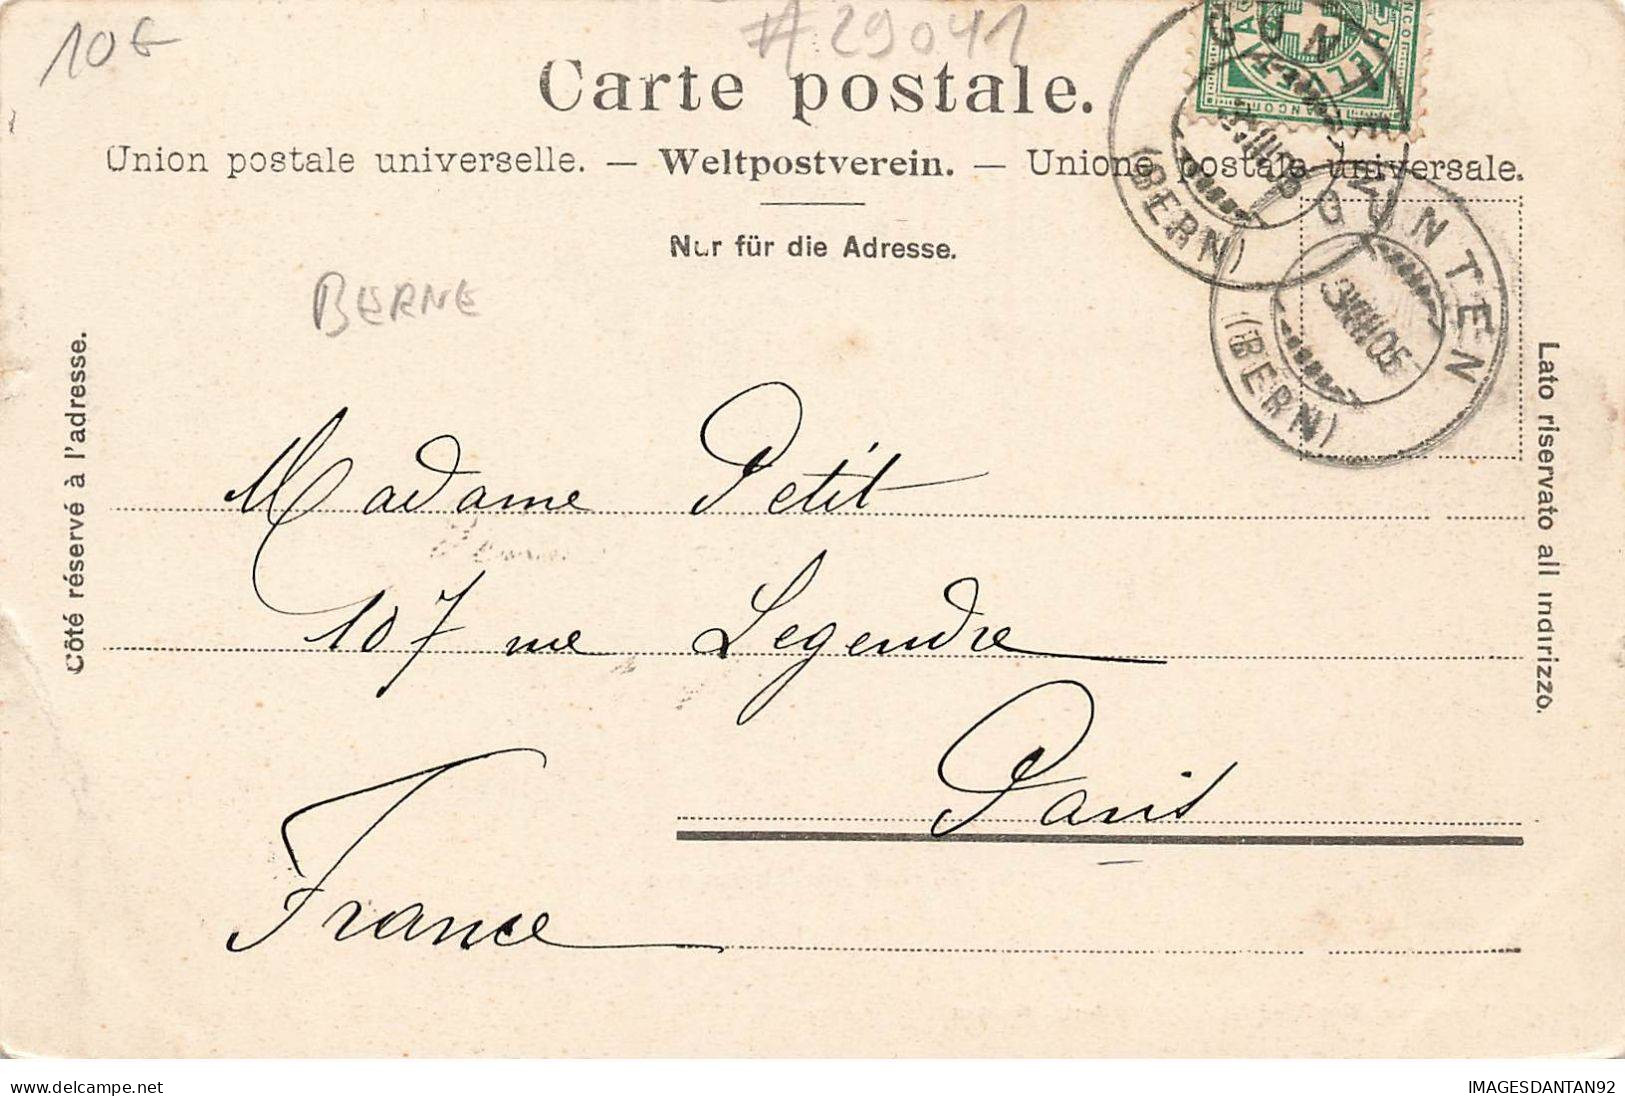 10€
#29041
Carte postale.
Union postale universelle. — Weltpostverein. — Unione postale universale.
Nur für die Adresse.
BERNE
GUNTEN
(BERN)
GUNTEN
(BERN)
Côté réservé à l'adresse.
Lato riservato all indirizzo.
Madame Petit
107 rue Legendre
Paris
France
www.delcampe.net
IMAGESDANTAN92